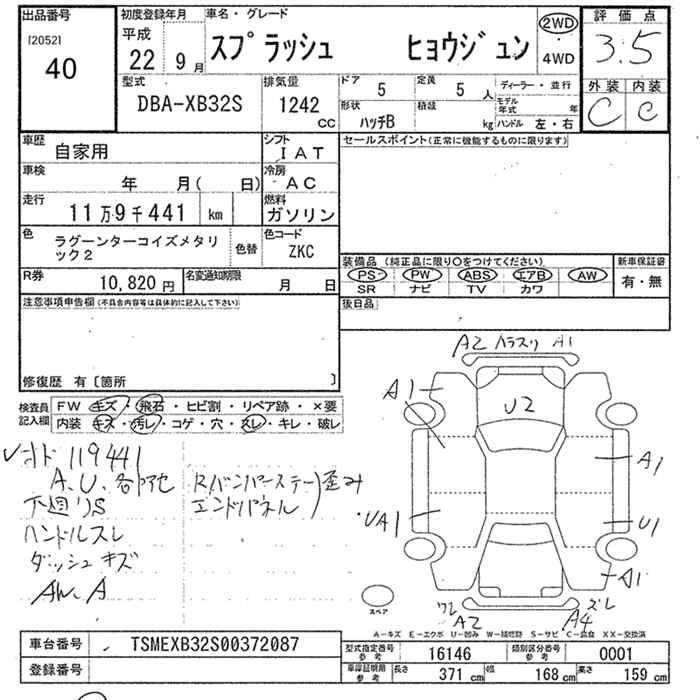 出品番号
[2052]
40
初度登録年月
平成
22 9月
車名・グレード
スプラッシュ ヒョウジュン
2WD
・
4WD
評価点
3.5
外装 内装
C C
型式
DBA-XB32S
排気量
1242
CC
ドア
5
定員
5人
形状
ハッチB
積載
kg
ディーラー・並行
モデル年式 年
ハンドル 左・右
車歴
自家用
シフト
IAT
セールスポイント(正常に機能するものに限ります)
車検
年 月( 日)
冷房
AC
走行
11万9千441 km
燃料
ガソリン
色
ラグーンターコイズメタリ
ック2
色替
色コード
ZKC
装備品(純正品に限り○をつけてください)
PS PW ABS エアB AW
SR ナビ TV カワ
新車保証書
有・無
R券
10,820円
名変通知期限
月 日
後日品
注意事項申告欄(不具合内容等は具体的に記入して下さい)
修復歴 有〔箇所 〕
検査員
記入欄
FW キズ・飛石・ヒビ割・リペア跡・×要
内装 キズ・汚レ・コゲ・穴・スレ・キレ・破レ
119441
A、U、各
下廻りS
ハンドルスレ
ダッシュキズ
AW、A
Rバンパーステー
エンドパネル
歪み
A2 A1
A1
U2
A1
UA1
U1
A1
ワレ
A2
A4
ズレ
スペア
A-キズ E-エクボ U-凹み W-補修跡 S-サビ C-腐食 XX-交換済
車台番号
TSMEXB32S00372087
登録番号
型式指定番号
参考
16146
類別区分番号
参考
0001
車庫証明用
参考
長さ 371cm
幅 168cm
高さ 159cm